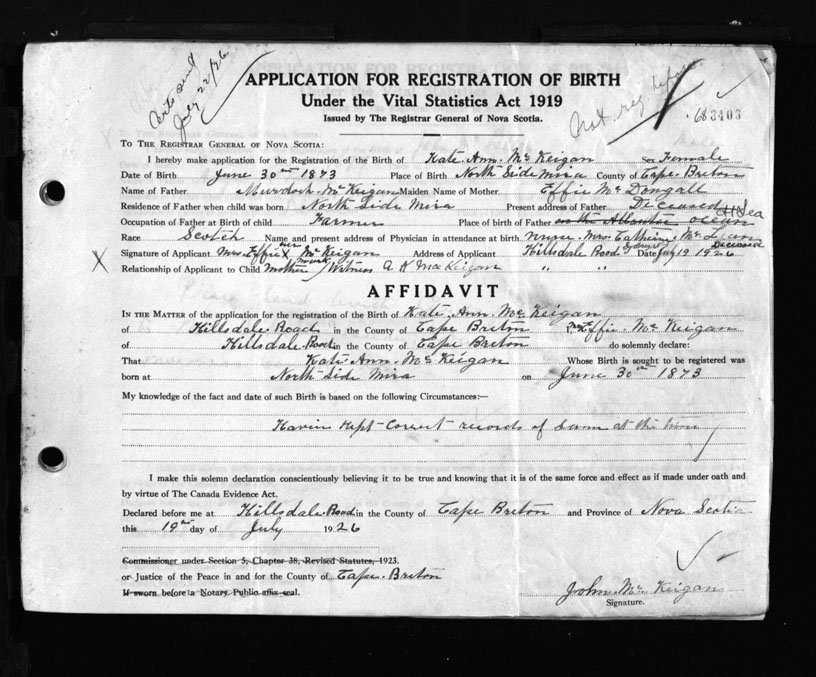 Certs sent
July 22/26
APPLICATION FOR REGISTRATION OF BIRTH
Under the Vital Statistics Act 1919
Issued by The Registrar General of Nova Scotia.
Not reg before
683403
To The Registrar General of Nova Scotia:
I hereby make application for the Registration of the Birth of Kate Ann Mc Keigan Sex Female
Date of Birth June 30th 1873 Place of Birth North Side Mira County of Cape Breton
Name of Father Murdoch Mc Keigan Maiden Name of Mother Effie Mc Dougall
Residence of Father when child was born North Side Mira Present address of Father Deceased
Occupation of Father at Birth of child Farmer Place of birth of Father on the Atlantic ocean At Sea
Race Scotch Name and present address of Physician in attendance at birth nurse Mrs. Catherine Mc Lean Deceased
Signature of Applicant Mrs Effie her X mark Mc Keigan Address of Applicant Hillsdale Road Date July 19 1926
X Relationship of Applicant to Child Mother / Witness A K MacKeigan " "
AFFIDAVIT
In the Matter of the application for the registration of Birth of Kate Ann Mc Keigan
of Hillsdale Road in the County of Cape Breton I, Effie Mc Keigan
of Hillsdale Road in the County of Cape Breton do solemnly declare:
That Kate Ann Mc Keigan Whose Birth is sought to be registered was
born at North Side Mira on June 30th 1873
My knowledge of the fact and date of such Birth is based on the following Circumstances:—
Havin Kept Correct records of Same at the time
I make this solemn declaration conscientiously believing it to be true and knowing that it is of the same force and effect as if made under oath and
by virtue of The Canada Evidence Act.
Declared before me at Hillsdale Road in the County of Cape Breton and Province of Nova Scotia
this 19th day of July 1926
Commissioner under Section 5, Chapter 38, Revised Statutes, 1923.
or Justice of the Peace in and for the County of Cape Breton
If sworn before a Notary Public affix seal.
John Mc Keigan
Signature.